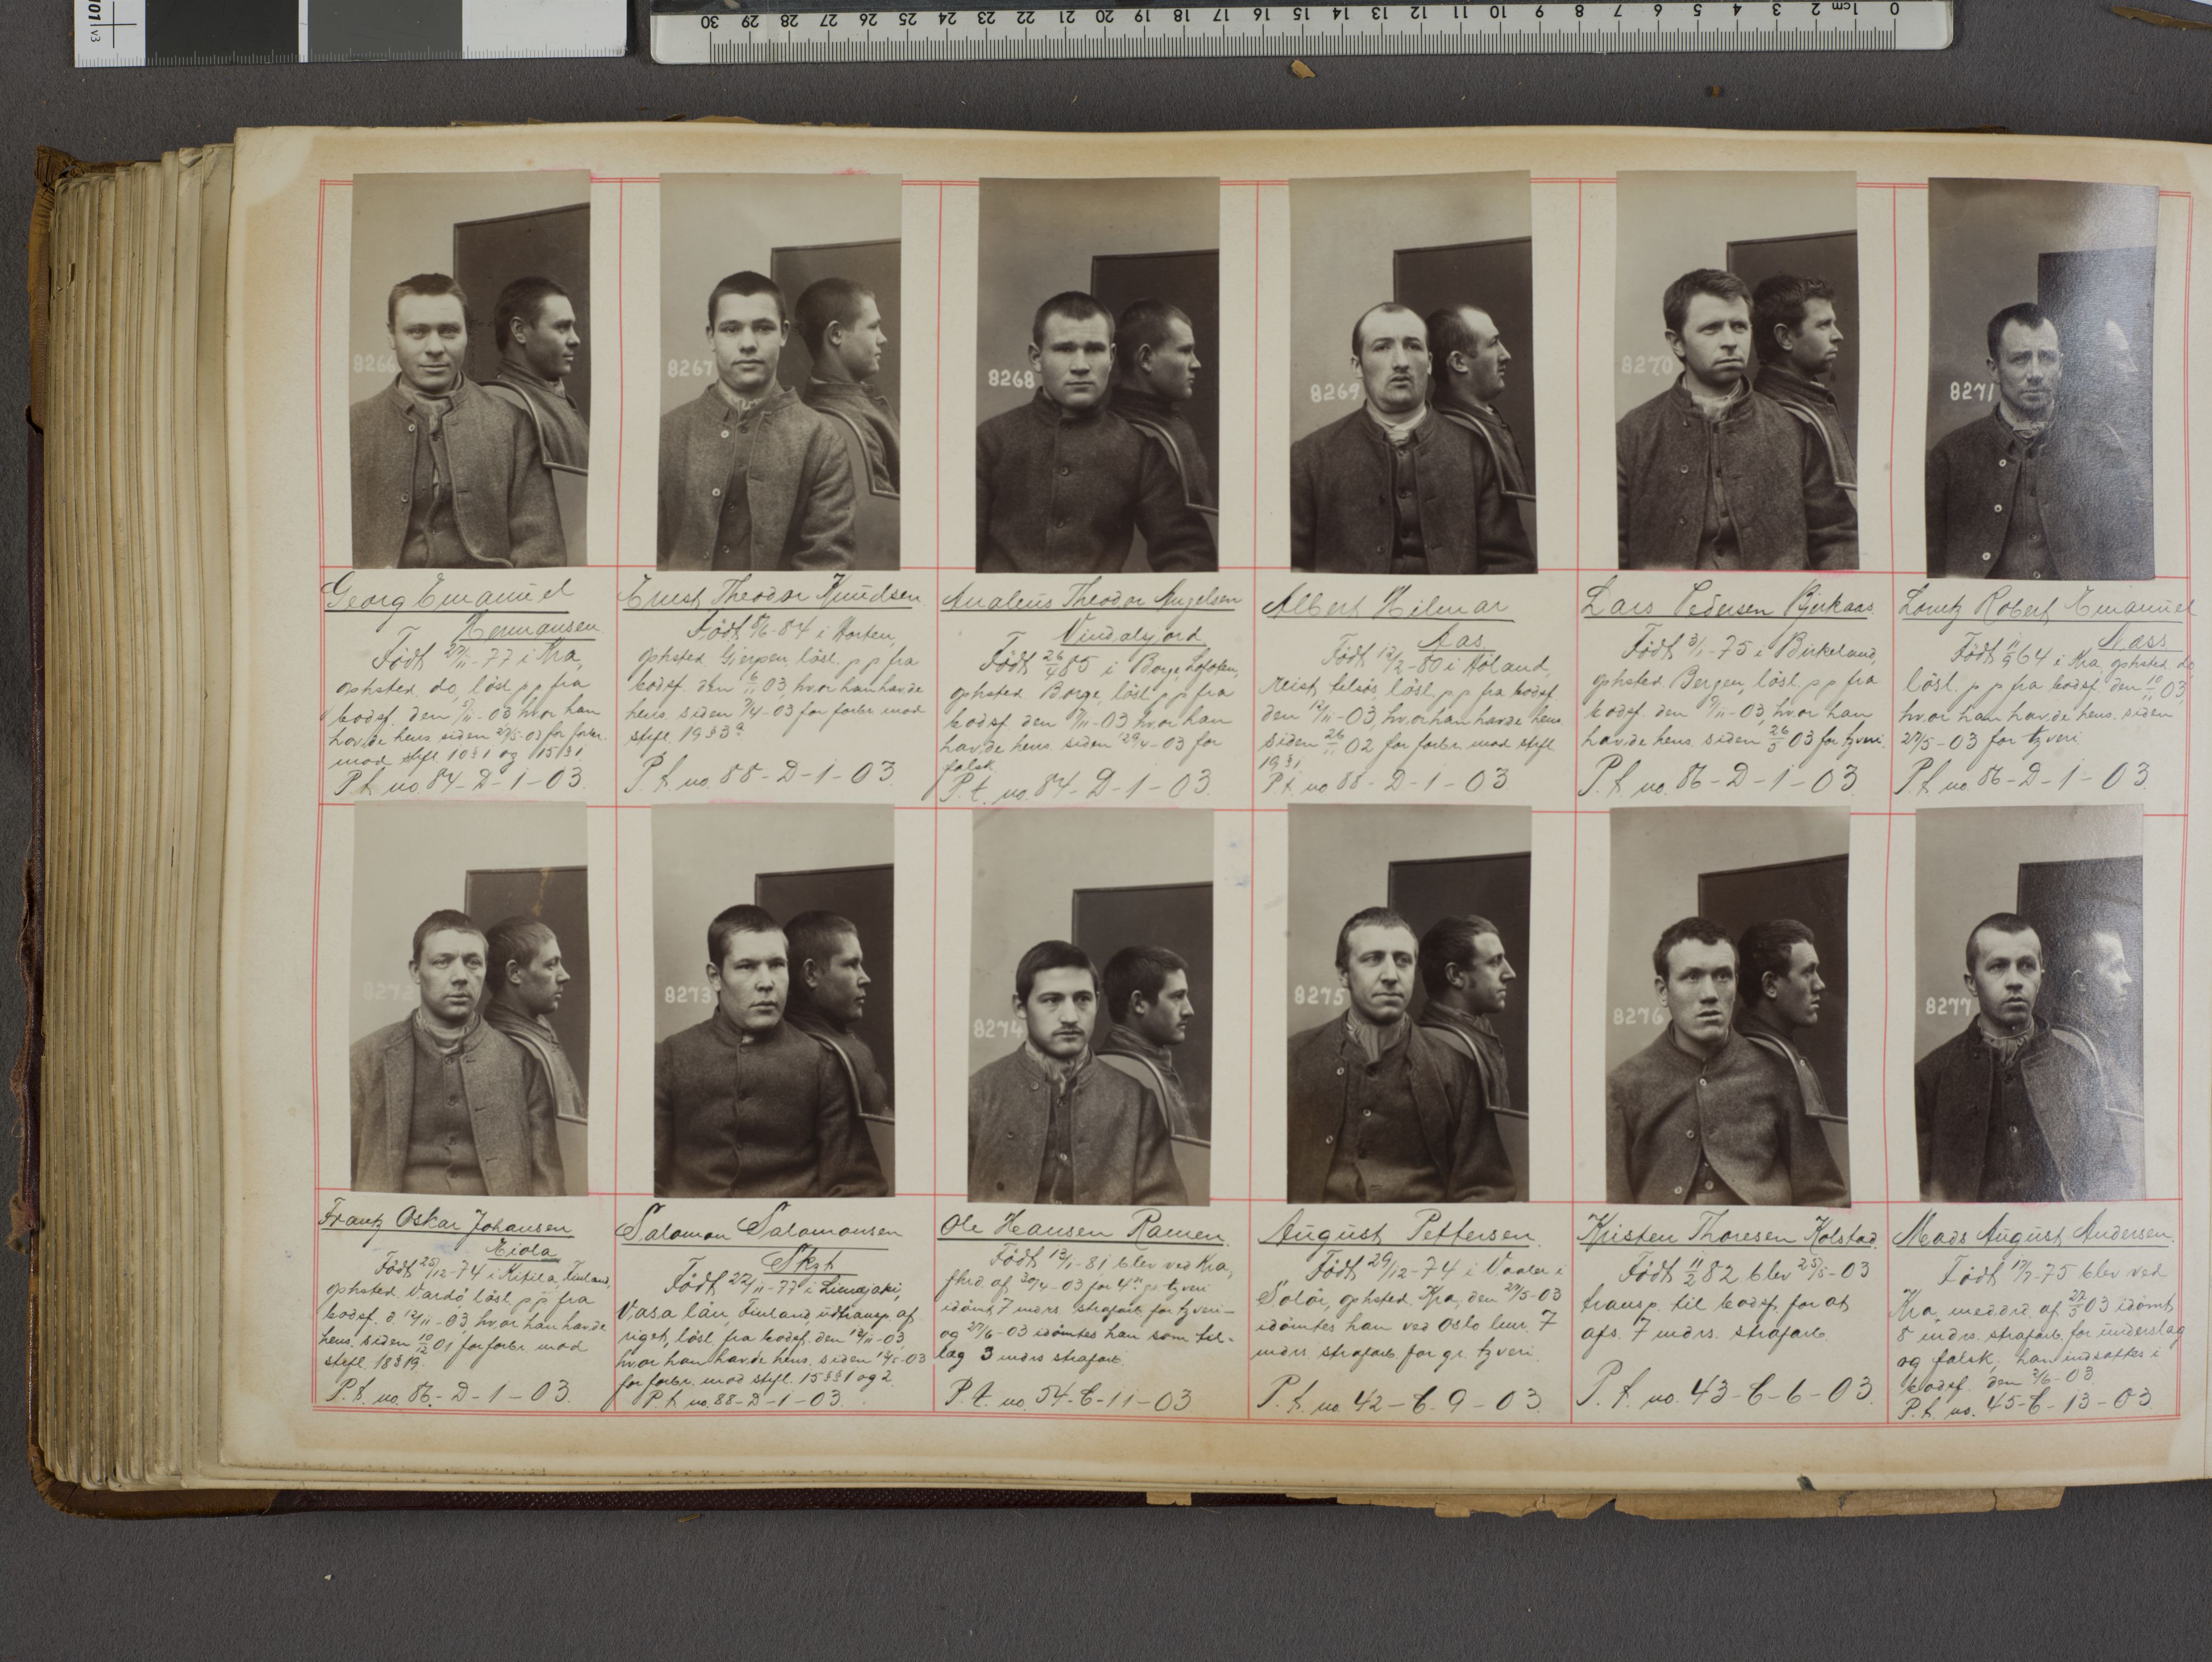 30 29 28 27 26 25 24 23 22 21 20 19 18 17 16 15 14 13 12 11 10 9 8 7 6 5 4 3 2 1cm 0
8266
Georg Emanuel
Hermansen
Född 27/11-77 i Kra,
ophsted. do, løsl. p p fra
bodsf. den 5/11-03 hvor han
havde hens. siden 27/5-03 for forbr.
mod stfl. 10 § 1 og 15 § 1
P.f. no. 84-D-1-03.
8267
Ernst Theodor Knudsen
Født 8/6-84 i Horten,
ophsted. Gjerpen, løsl. p p fra
bodsf. den 6/11 03, hvor han havde
hens. siden 7/4-03 for forbr. mod
stfl. 19 § 3
P.f. no. 88-D-1-03.
8268
Theodor Angelsen
Vindalfjord
Født 26/4 85 i Borge, Lofoten,
ophsted. Borge, løsl. p p fra
bodsf. den 9/11-03 hvor han
havde hens. siden 29/4-03 for
falsk.
P.t. no. 84-D-1-03.
8269
Albert Hilmar
Aas
Født 12/2-80 i Høland,
løsl. p p fra bodsf.
den 12/11-03, hvor han havde hens.
siden 26/11 02 for forbr. mod stfl.
19 § 1
P.t. no. 88-D-1-03
8270
Lars Pedersen Bjerkaas
Født 3/1-75 i Birkeland,
ophsted. Bergen, løsl. p p fra
bodsf. den 9/11-03, hvor han
havde hens. siden 26/5 03 for tyveri.
P.f. no. 86-D-1-03.
8271
Lorntz Robert Emanuel
Nass
Født 11/9 64 i Kra, ophsted. do,
løsl. p p fra bodsf. den 10/11 03,
hvor han havde hens. siden
27/5-03 for tyveri
P.f. no. 86-D-1-03.
8272
Frantz Oskar Johansen
Eiola
Født 25/12-74 i Kitila, Finland,
ophsted. Vardø, løsl. p p fra
bodsf. d. 12/11-03, hvor han havde
hens. siden 10/12 01 for forbr. mod
stfl. 18 § 19.
P.f. no. 86-D-1-03.
8273
Salamon Salamonsen
Skyt
Født 22/11-77 i
Vasa län, Finland, udtransp. af
riget, løsl. fra bodsf. den 12/11-03,
hvor han havde hens. siden 12/5-03
for forbr. mod stfl. 15 §§ 1 og 2.
P.f. no. 88-D-1-03.
8274
Ole Hansen Ramen.
Født 13/1-81 blev ved Kra,
af 30/4-03 for 4de g. tyveri
idømt 7 mdrs. strafarb. for tyveri-
og 27/6-03 idømtes han som til-
læg 3 mdrs strafarb.
P.t. no. 54-C-11-03
8275
August Pettersen.
Født 29/12-74 i Vaaler i
Solør, ophsted. Kra, den 27/5-03
idømtes han ved Oslo 7
mdrs. strafarb. for gr. tyveri.
P.f. no. 42-C-9-03.
8276
Kristen Thoresen Kolstad.
Født 11/2 82 blev 25/5-03
transp. til bodsf. for at
afs. 7 mdrs. strafarb.
P.f. no. 43-C-6-03.
8277
Mads August Andersen.
Født 17/7-75 blev ved
Kra, meddrd. af 27/5 03 idømt
8 mdrs. strafarb. for underslag
og falsk, han indsattes i
bodsf. den 2/6-03
P.f. no. 45-C-13-03